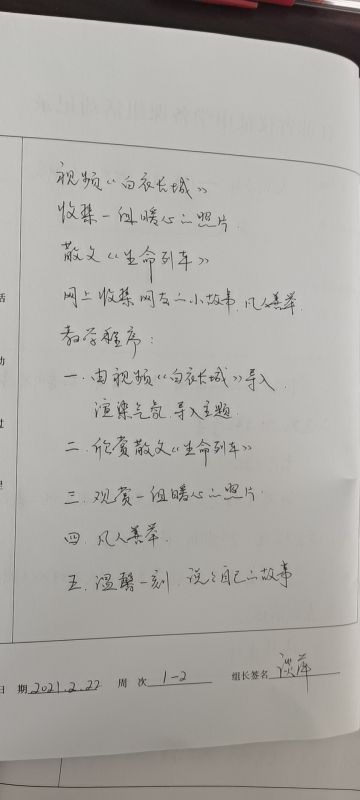 视频《白衣长城》
收集一组暖心的照片.
散文《生命列车》
网上收集网友的小故事,凡人善举.
教学程序:
一.由视频《白衣长城》导入.
渲染气氛.导入主题.
二.欣赏散文《生命列车》
三.观赏一组暖心的照片.
四.凡人善举.
五.温馨一刻.说说自己的故事
日 期 2021.2.22 周 次 1-2 组长签名